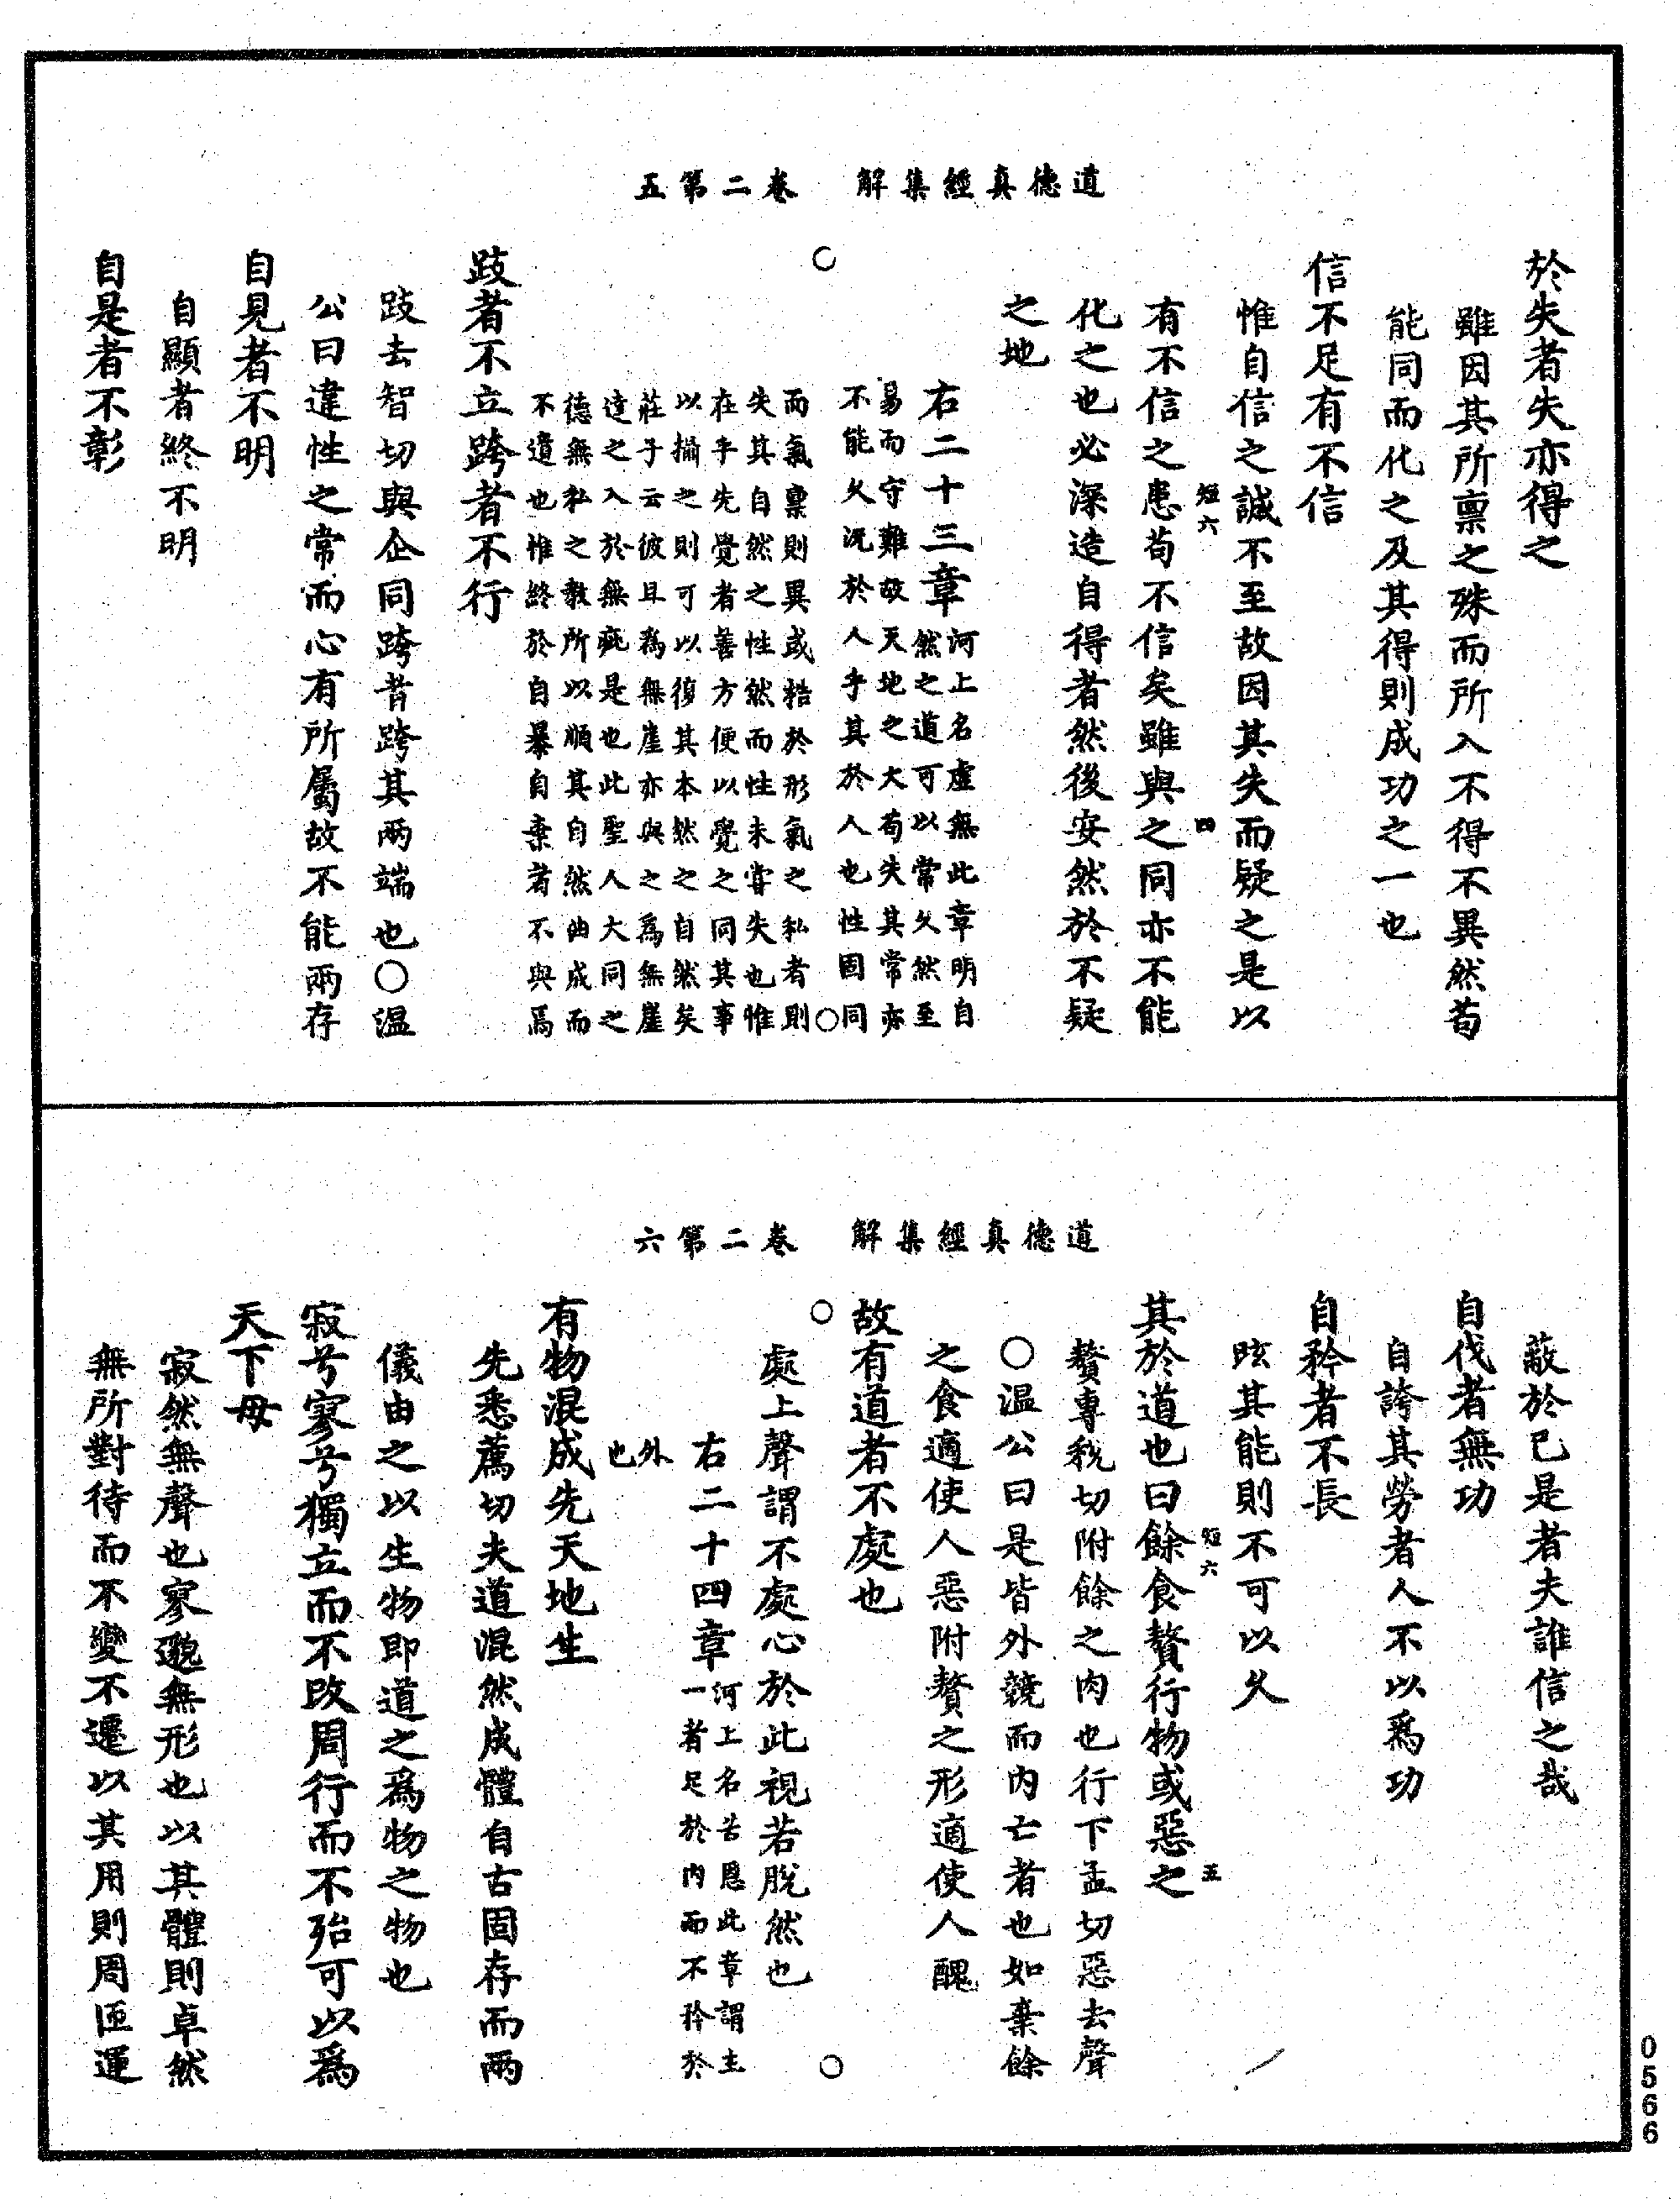 道德真經集解　卷二第五
於失者失亦得之
雖因其所稟之殊而所入不得不異然苟
能同而化之及其得則成功之一也
信不足有不信
惟自信之誠不至故因其失而疑之是以
短六
四
有不信之患苟不信矣雖與之同亦不能
化之也必深造自得者然後安然於不疑
之地
右二十三章
河上名虛無此章明自
然之道可以常久然至
易而守難故天地之大苟失其常亦
不能久況於人乎其於人也性固同
而氣稟則異或梏於形氣之私者則
失其自然之性然而性未嘗失也惟
在乎先覺者善方便以覺之同其事
以攝之則可以復其本然之自然矣
莊子云彼且為無崖亦與之為無崖
達之入於無疵是也此聖人大同之
德無私之教所以順其自然曲成而
不遺也惟終於自暴自棄者不與焉
跂者不立跨者不行
跂去智切與企同跨音跨其兩端也〇溫
公曰違性之常而心有所屬故不能兩存
自見者不明
自顯者終不明
自是者不彰
道德真經集解　卷二第六
蔽於已是者夫誰信之哉
自伐者無功
自誇其勞者人不以為功
自矜者不長
眩其能則不可以久
短六
五
其於道也曰餘食贅行物或惡之
贅專稅切附餘之肉也行下孟切惡去聲
〇溫公曰是皆外競而內亡者也如棄餘
之食適使人惡附贅之形適使人醜
故有道者不處也
處上聲謂不處心於此視若脫然也
右二十四章
河上名苦恩此章謂主
一者足於內而不矜於
外
也
有物混成先天地生
先悉薦切夫道混然成體自古固存而兩
儀由之以生物即道之為物之物也
寂兮寥兮獨立而不改周行而不殆可以為
天下母
寂然無聲也寥邈無形也以其體則卓然
無所對待而不變不遷以其用則周匝運
0566